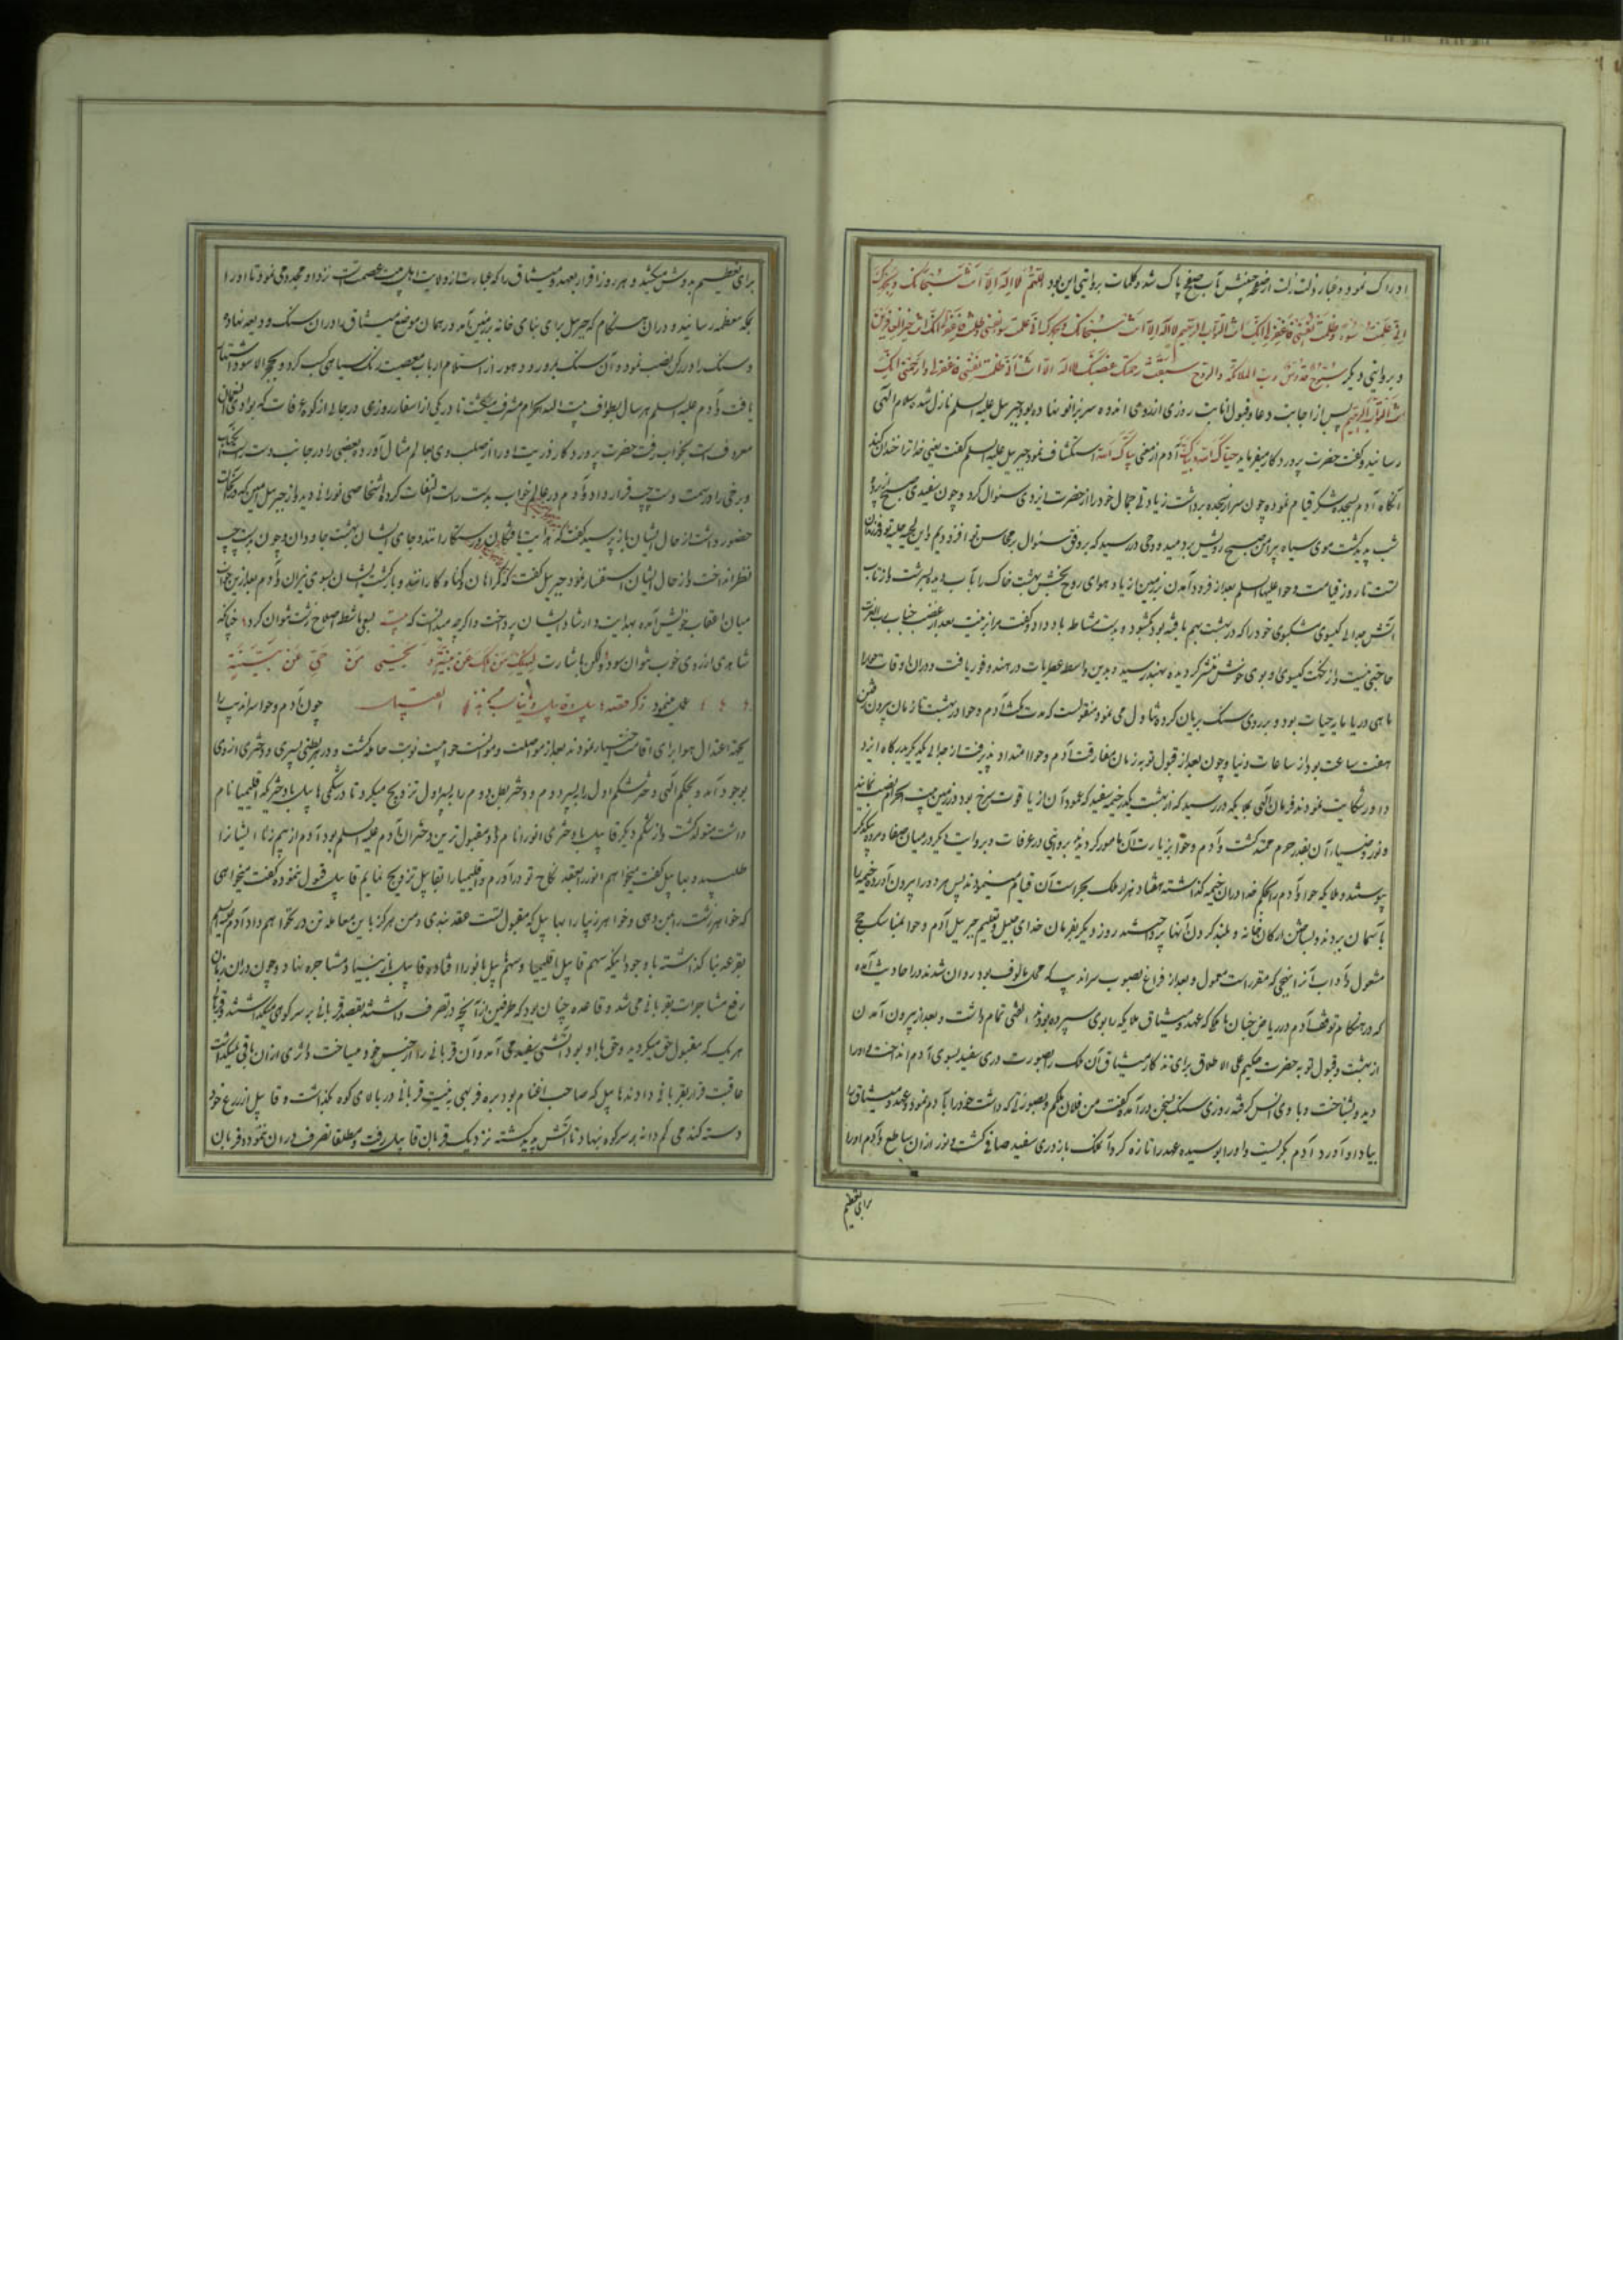 ادراک نمود و غبار ذلت زلت از صفحه جبینش بآب صفح پاک شد و کلمات بروایتی این بود اللهم لا اله الا انت سبحانک و بحمدک
انی عملت سوء و ظلمت نفسی فاغفر لی انک انت التواب الرحیم لا اله الا انت سبحانک و بحمدک انی عملت سوء و ظلمت نفسی فاغفر لی انک انت خیر الغافرین
و بروایتی دیگر سبوح قدوس رب الملائکة والروح سبقت رحمتک غضبک لا اله الا انت انی ظلمت نفسی فاغفر لی وارحمنی انک
انت التواب الرحیم پس از اجابت دعا و قبول انابت روزی از روی اندوه سر بزانو نهاده بود جبرئیل علیه السلم نازل شد و سلام الهی
رسانید و گفت حضرت پروردگار میفرماید حیاک الله و بیاک آدم از معنی بیاک الله استکشاف نمود جبرئیل علیه السلم گفت یعنی خدا ترا خندان کند
آنگاه آدم بسجده شکر قیام نموده چون سر از سجده برداشت زیادتی جمال خود را از حضرت ایزدی سئوال کرد و چون سفیدی صبح از پرده
شب پدید گشت موی سیاه پیرامن صبح رویش بردمید و وحی در رسید که بر وفق سئوال بر محاسن تو افزودیم و این لحیه حلیه تو و فرزندان
تست تا روز قیامت و حوا علیها السلم بعد از فرود آمدن بزمین از یاد هوای روح بخش بهشت خاک را بآب دیده بسرشت و از تاب
آتش جدایی گیسوی مشکبوی خود را که در بهشت بهم بافته بود گشوده بدست مشاطه باد داد و گفت مرا بزینت بعد از غضب جناب رب العزت
حاجتی نیست و از نکهت گیسوی او بوی خوش منتشر گردیده بهند رسید و بدین واسطه عطریات در هند وفور یافت و در آن اوقات حوا را
ماهی دریا مایه حیات بود و بر روی سنگ بریان کرده تناول می نمود منقولست که مدت مکث آدم و حوا در بهشت تا زمان بیرون رفتن
هفت ساعت بود از ساعات دنیا و چون بعد از قبول توبه زمان مفارقت آدم و حوا امتداد پذیرفت از جدایی یکدیگر بدرگاه ایزد
داور شکایت نمودند فرمان الهی بملایکه در رسید که از بهشت یک خیمه سفید که عمود آن از یاقوت سرخ بود در زمین بیت الحرام نصب نمایند
و نور و ضیاء آن بقدر حرم ممتد گشت و آدم و حوا بزیارت آن مامور گردیدند بروایتی در عرفات و بروایت دیگر در میان صفا و مروه بیکدیگر
پیوستند و ملایکه حوا و آدم را بحکم خدا در آن خیمه گذاشته هفتاد هزار ملک بحراست آن قیام مینمودند پس مردو را بیرون آورده خیمه را
بآسمان بردند و بساختن ارکان خانه و بلند کردن آنها پرداختند روز دیگر بفرمان خدای جلیل و تعلیم جبرئیل آدم و حوا بمناسک حج
مشغول و آداب آنرا بنهجی که مقرر است معمول و بعد از فراغ بصوب سراندیب که محل مالوف بود روان شدند در احادیث آمده
که در هنگام توقف آدم در ریاض جنان با ملکی که عهد و میثاق ملایکه را بوی سپرده بودند الفتی تمام داشت و بعد از بیرون آمدن
از بهشت و قبول توبه حضرت حکیم علی الاطلاق برای تذکار میثاق آن ملک را بصورت دری سفید بسوی آدم انداخت و او را
دید و نشناخت و با وی انس گرفته روزی سنگ بسخن در آمده گفت من فلان ملکم و بصورتی که داشت خود را بآدم نمود و عهد و میثاق را
بیاد او آورد آدم بگریست و او را بوسیده عهد را تازه کرد و آن ملک باز دری سفید صافی گشت و نور از آن ساطع و آدم او را
برای تعظیم
برای تعظیم بدوش میکشید و هر روز اقرار بعهد و میثاق را که عبارت از ولایت اهل بیت عصمت است نزد او مجددا می نمود تا او را
بمکه معظمه رسانید و در آن هنگام که جبرئیل برای بنای خانه بزمین آمد در همان موضع میثاق را در آن سنگ ودیعه نهاده
و سنگ را در رکن نصب نمود و آن سنگ بمرور دهور از استلام ارباب معصیت رنگ سیاهی کسب کرد و بحجر الاسود اشتهار
یافت و آدم علیه السلم هر سال بطواف بیت الله الحرام مشرف میگشت تا در یکی از اسفار روزی در جایی از کوه عرفات که بوادی النعمان
معروف است بخواب رفت حضرت پروردگار ذریت او را از صلب وی بعالم مثال آورده بعضی را در جانب دست راست
و برخی را در سمت دست چپ قرار داد و آدم در عالم خواب بدست راست التفات کرده اشخاصی نورانی دید و از جبرئیل امین که در آنجا
حضور داشت از حال ایشان باز پرسید گفت که هدایت یافتگان و رستگارانند و جای ایشان بهشت جاودان و چون بدست چپ
نظر انداخت و از حال ایشان استفسار نمود جبرئیل گفت که گمراهان و گناه کارانند و بازگشت ایشان بسوی نیران و آدم بعد از بین
میان اعقاب خویش آمده بهدایت و ارشاد ایشان پرداخت و اگر چه میدانست که بیت بسعی ماشطه اصلاح زشت نتوان کرد چنانکه
شاهدی از روی خوب نتوان سود ولکن باشارت لیهلک من هلک عن بینة و یحیی من حی عن بینة
عمل مینمود ذکر قصه هابیل و قابیل چون آدم و حوا سراندیب را
بجهة اعتدال هوا برای اقامت اختیار نمودند بعد از مواصلت و موانست حوا بیست نوبت حامله گشت و در هر بطنی پسری و دختری از وی
بوجود آمد و بحکم الهی دختر شکم اول را بپسر دوم و دختر بطن دوم را بپسر اول تزویج میکرد تا در شکمی هابیل با دختری که اقلیمیا نام
داشت متولد گشت و از شکم دیگر قابیل با دختری لوزا نام و او مقبول ترین دختران آدم علیه السلم بود آدم ایشانرا
طلبیده بهابیل گفت میخواهم لوزا را بعقد نکاح تو درآورم و اقلیمیا را بقابیل تزویج نمایم قابیل قبول ننموده گفت میخواهی
که خواهر زشت را بمن دهی و خواهر زیبا را بهابیل که مقبول تست عقد بندی و من هرگز باین معامله تن در نخواهم داد آدم علیه السلم
بقرعه بنا گذاشته با وجود اینکه سهم قابیل اقلیمیا و سهم هابیل لوزا افتاده قابیل باز مشاجره نهاد و چون در آن زمان
رفع مشاجرات بقربانی می شد و قاعده چنان بود که طرفین از آنچه در تصرف داشتند بقصد قربانی بر سر کوهی میگذاشتند و قربانی
هر یک که مقبول حق میگردید و حق با او بود آتشی سفید می آمد و آن قربانی را از جنس خود میساخت و اثری از آن باقی نمیگذاشت
عاقبت قرار بقربانی دادند هابیل که صاحب اغنام بود بره فربهی بنیت قربانی در بالای کوه بگذاشت و قابیل از زرع خود
دسته گندمی کم دانه بر سر کوه نهاد تا آتش پدید گشته نزدیک قربان قابیل رفت و مطلقا تصرف در آن ننموده و قربان